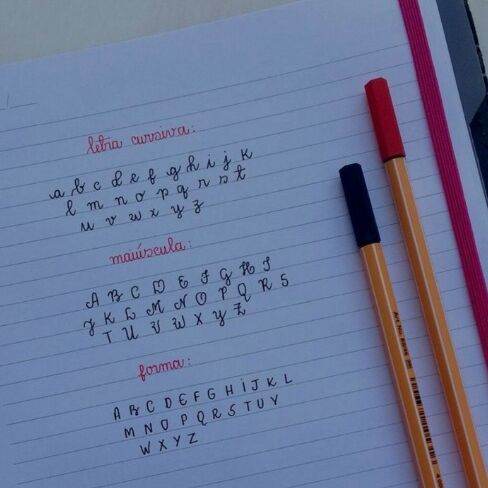 letra cursiva:
a b c d e f g h i j k
l m n o p q r s t
u v w x y z
maiúscula:
A B C D E F G H I
J K L M N O P Q R S
T U V W X Y Z
forma:
A B C D E F G H I J K L
M N O P Q R S T U V
W X Y Z